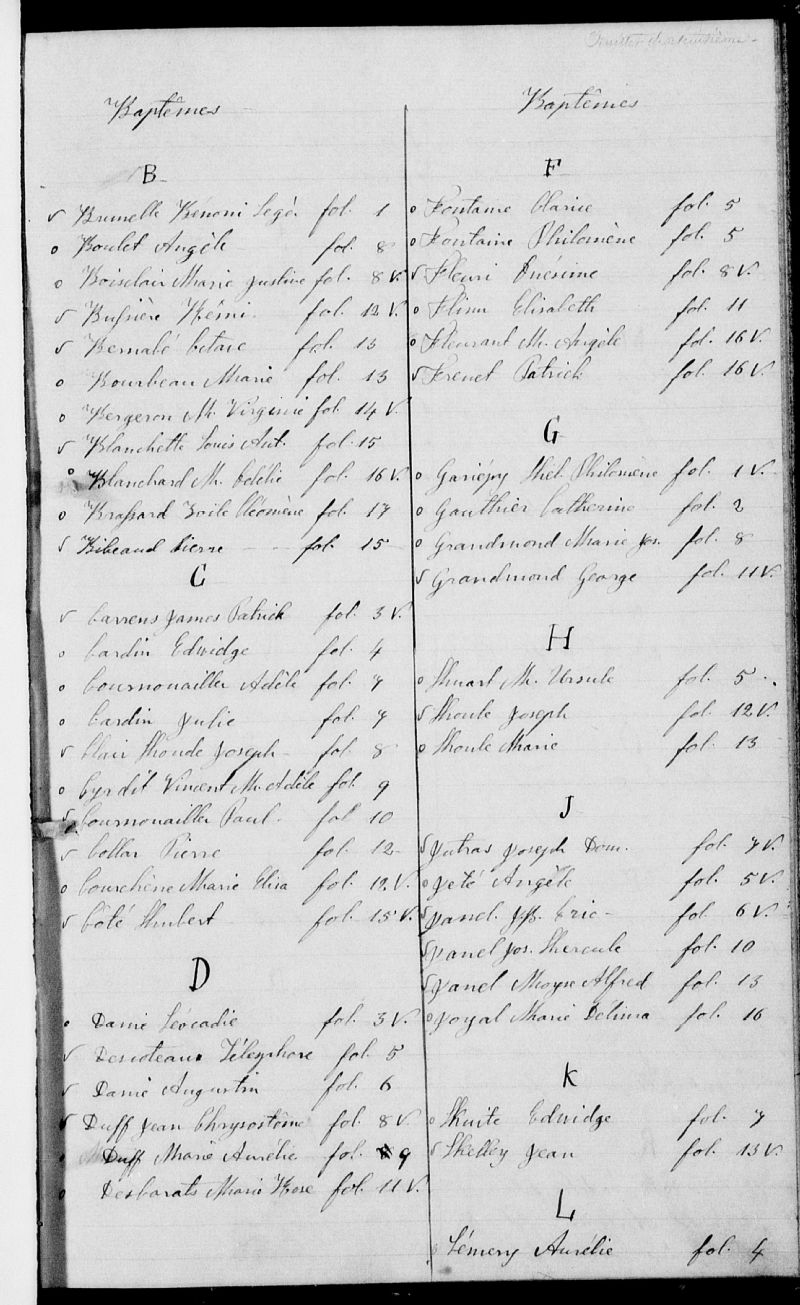 Baptêmes
B
v Brunelle Bénoni Legér fol. 1
o Boulet Angèle fol. 8
o Boisclair Marie Justine fol. 8 V.
v Bussière Rémi fol. 12 V.
v Bernabé Octave fol. 13
o Bourbeau Marie fol. 13
o Bergeron M. Virginie fol. 14 V.
v Blanchette Louis Ant. fol. 15
o Blanchard M. Odélie fol. 16 V.
o Brassard Zoïle Cléomène fol. 17
v Bibeaud Pierre fol. 15
C
v Carrens James Patrick fol. 3 V.
o Cardin Edwidge fol. 4
o Cournouailler Adèle fol. 7
o Cardin Julie fol. 7
v Clair Honde Joseph fol. 8
o Cyrdit Vincent M. Adèle fol. 9
v Cournouailler Paul fol. 10
v Collar Pierre fol. 12
o Courchène Marie Elisa fol. 12 V.
v Côté Hubert fol. 15 V.
D
o Danie Léocadie fol. 3 V.
v Descoteaux Télesphore fol. 5
v Danie Augustin fol. 6
v Duff Jean Chrysostôme fol. 8 V.
o Duff Marie Aurélie fol. 9
o Desbarats Marie Rose fol. 11 V.
Baptêmes
F
o Fontaine Clarice fol. 5
o Fontaine Philomène fol. 5
v Fleuri Onésime fol. 8 V.
o Flinn Elisabeth fol. 11
o Fleurant M. Angèle fol. 16 V.
v Frenet Patrick fol. 16 V.
G
o Gariépy Hel. Philomène fol. 1 V.
o Gauthier Catherine fol. 2
o Grandmond Marie Jos. fol. 8
v Grandmond George fol. 11 V.
H
o Huart M. Ursule fol. 5
v Houle Joseph fol. 12 V.
o Houle Marie fol. 13
J
v Jutras Joseph Dom. fol. 7 V.
o Jeté Angèle fol. 5 V.
v Janel Jos. Eric fol. 6 V.
v Janel Jos. Hercule fol. 10
v Janel Moyse Alfred fol. 13
o Joyal Marie Délima fol. 16
K
o Kuite Edwidge fol. 7
v Kelley Jean fol. 13 V.
L
o Lémery Aurélie fol. 4